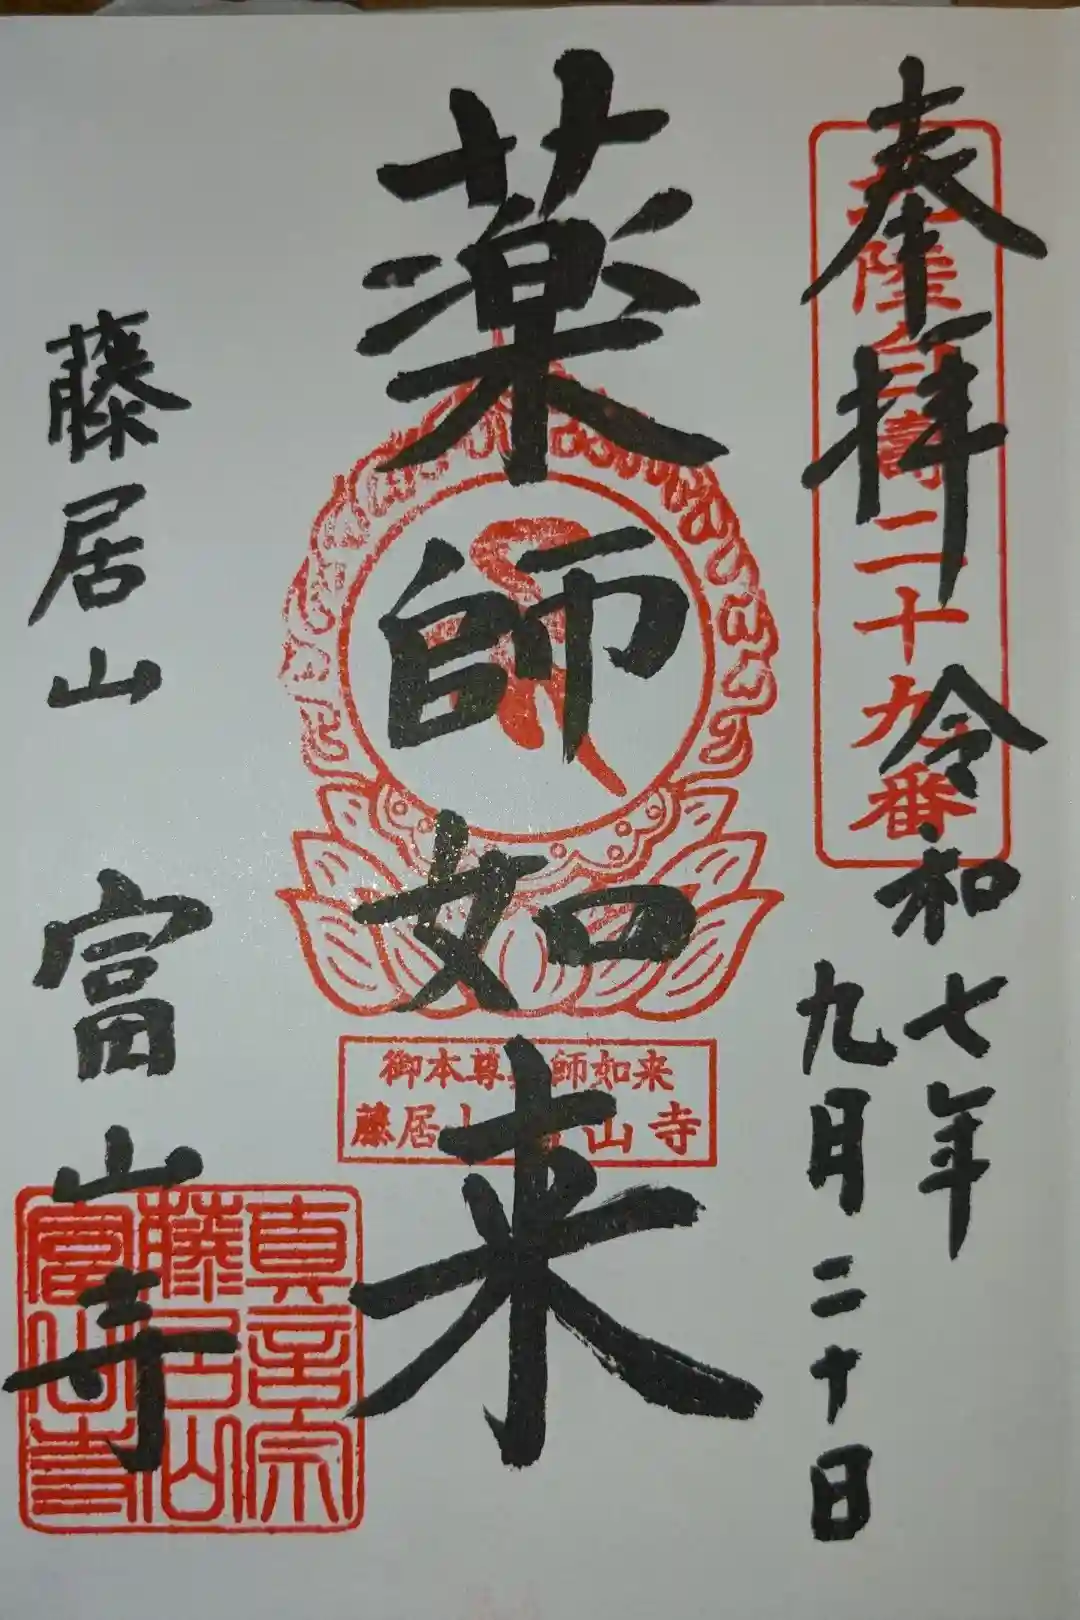 奉拝
令和七年
九月二十日
二十九番
薬師如来
御本尊 師如来
藤居山 山寺
藤居山 富山寺
真言宗
藤居山
富山寺